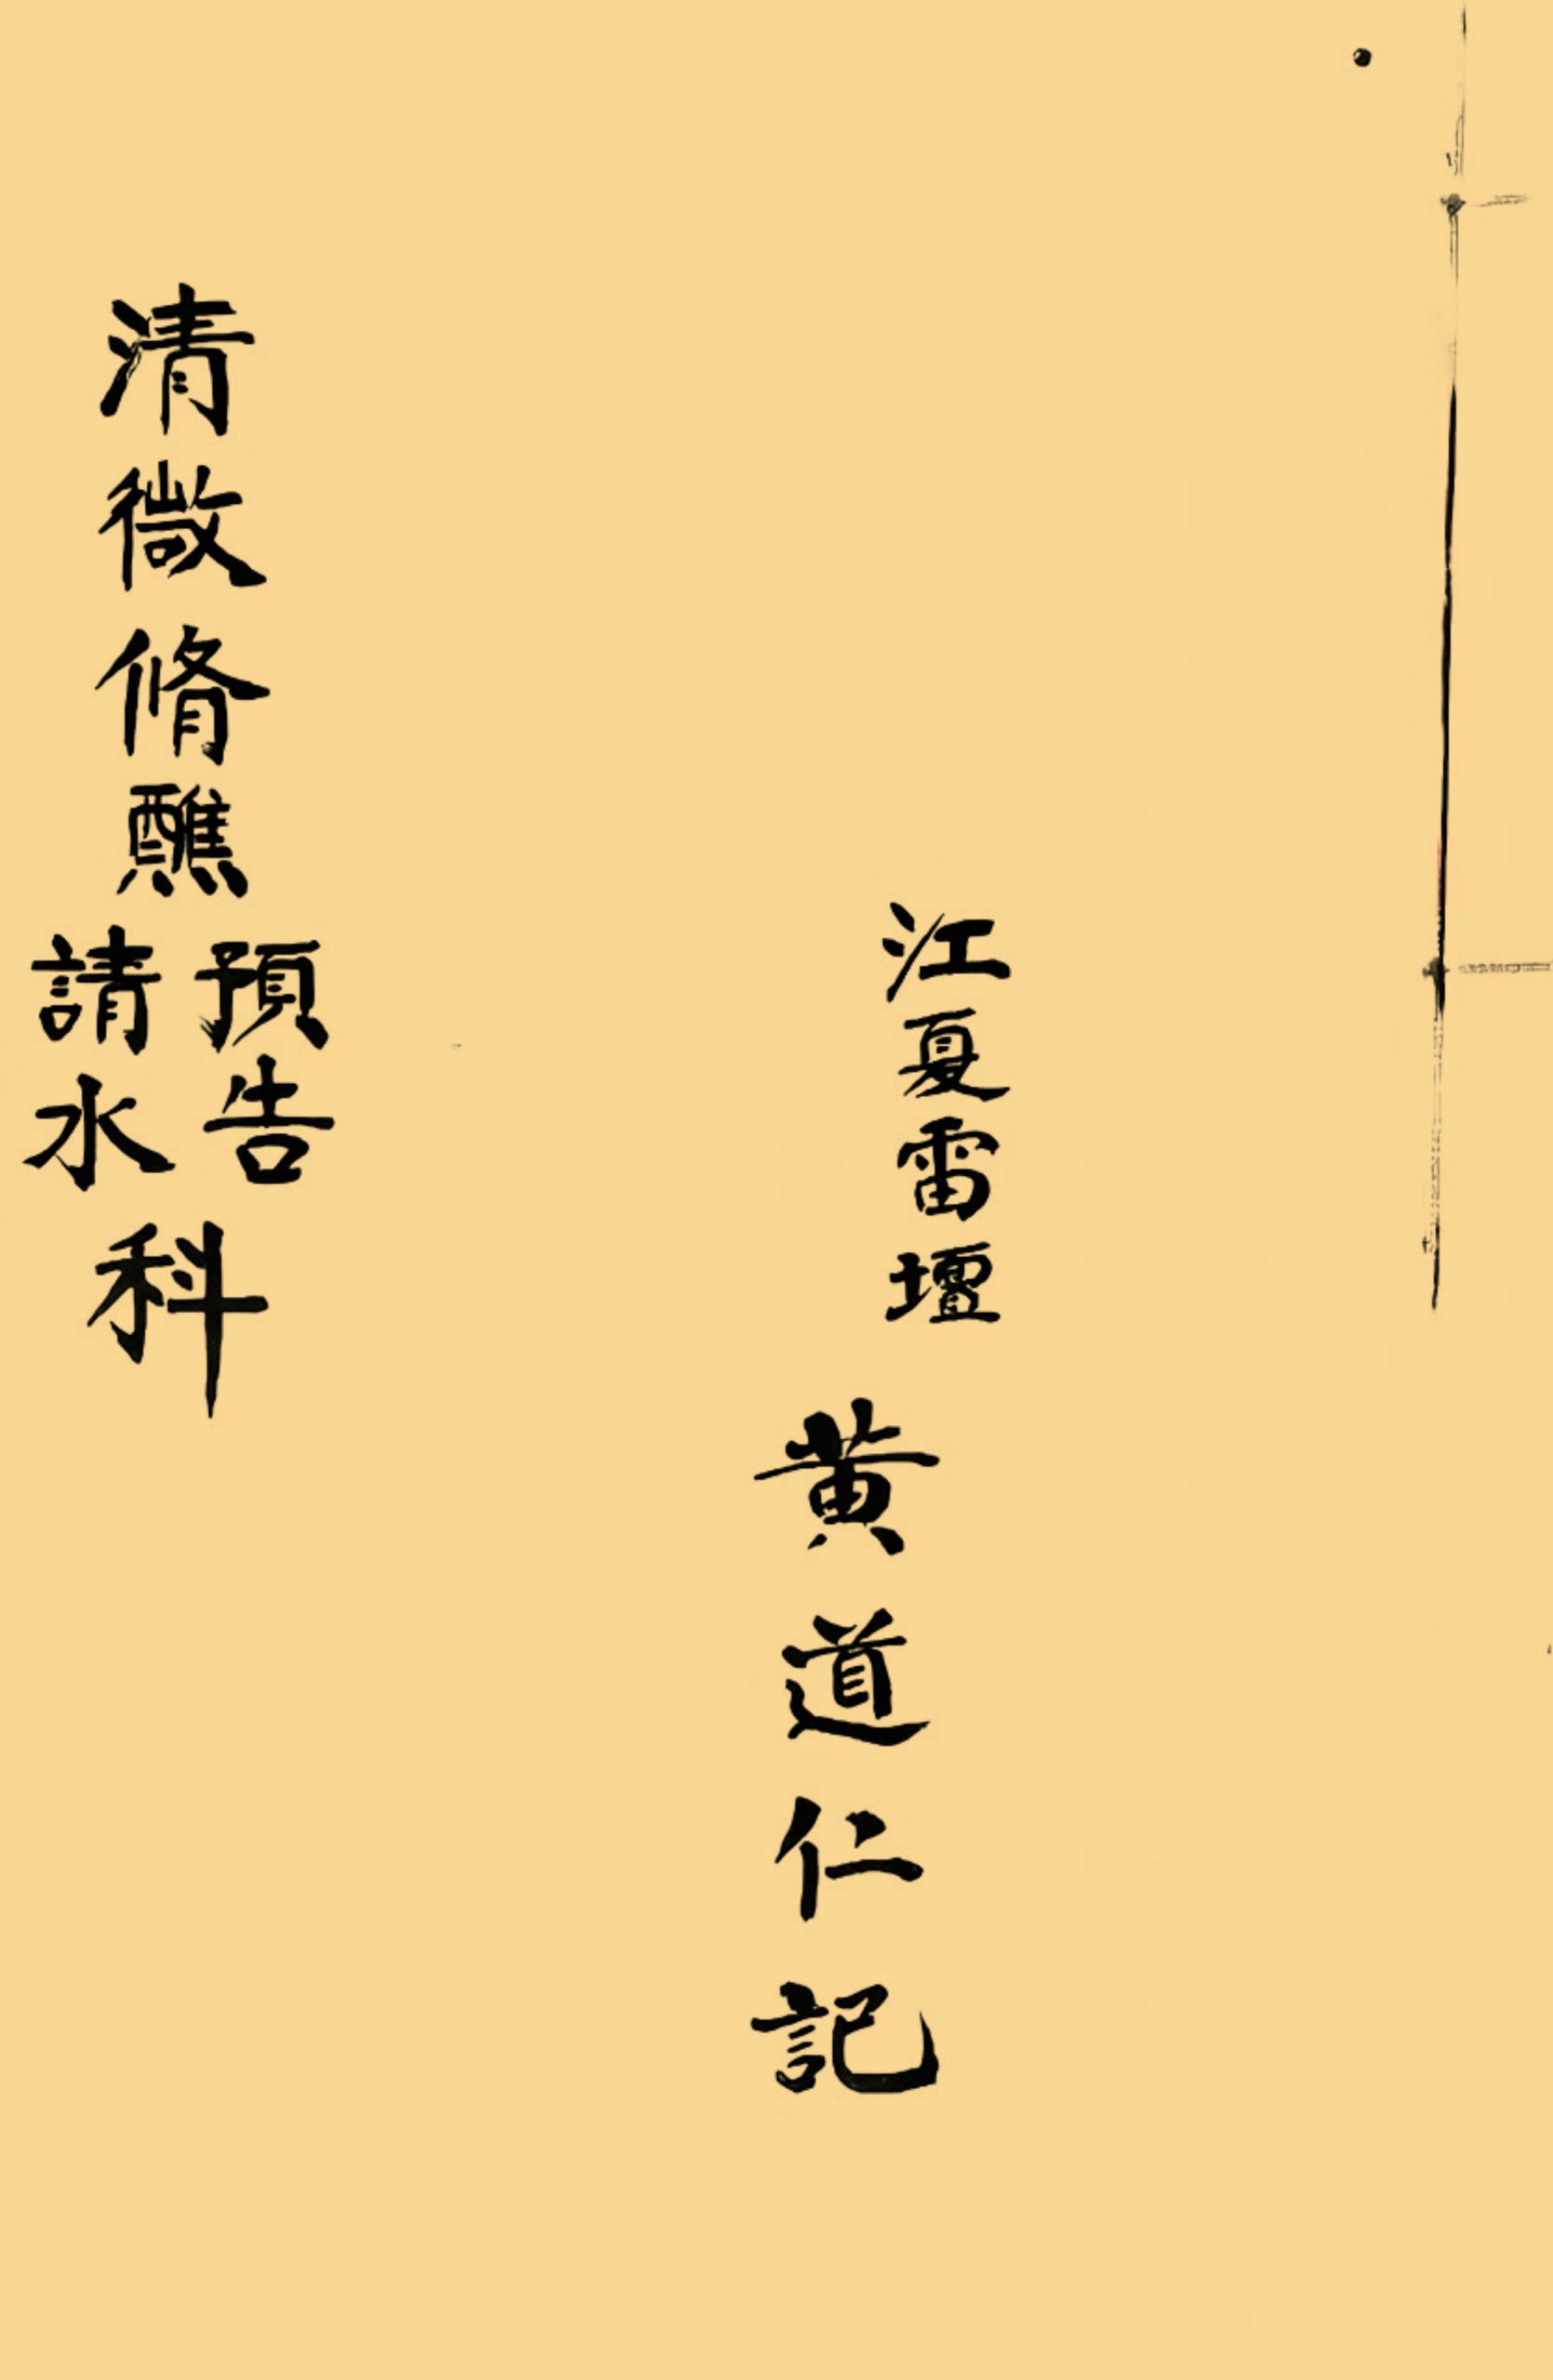 江夏雷壇
黄道仁記
清微脩醮
預告
請水
科